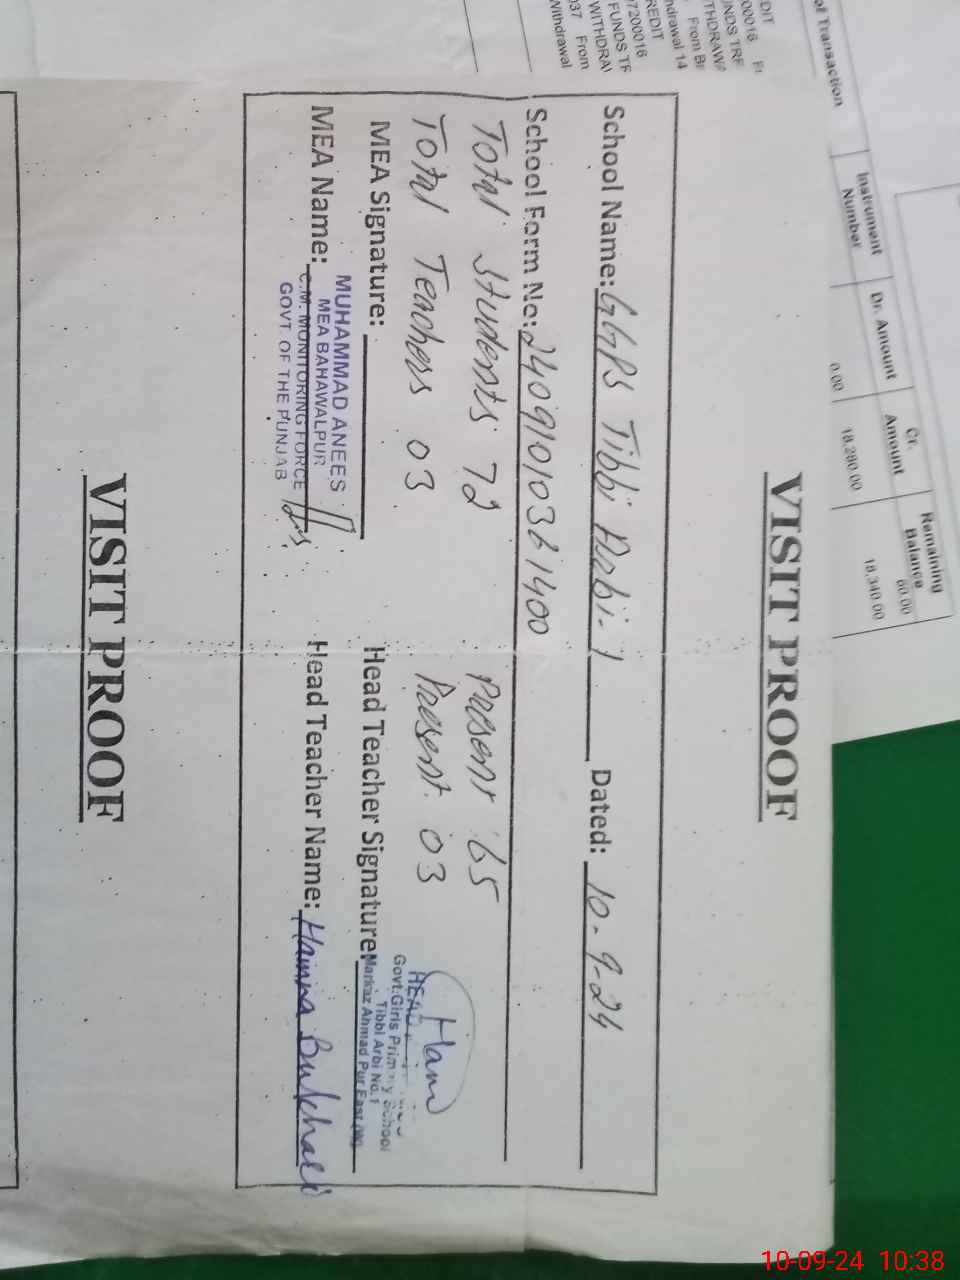 VISIT PROOF
School Name: GGPS Tibbi Arbi-1 Dated: 10-9-24
School Form No: 24091010361400
Total Students 72 Present 65
Total Teachers 03 Present 03
MEA Signature:
Head Teacher Signature:
Ham
HEAD
Govt: Girls Primary School
Tibbi Arbi No.1
Markaz Ahmad Pur East (W)
MEA Name:
MUHAMMAD ANEES
MEA BAHAWALPUR
C.M. MONITORING FORCE
GOVT. OF THE PUNJAB
Head Teacher Name: Hamna Bukhari
VISIT PROOF
of Transaction
Instrument Number
Dr. Amount
Cr. Amount
Remaining Balance
60.00
0.00
18,280.00
18,340.00
EDIT
00016
THDRAWA
From
ndrawal 14
REDIT
7200016
FUNDS TF
WITHDRA
037 From
Withdrawal
10-09-24 10:38